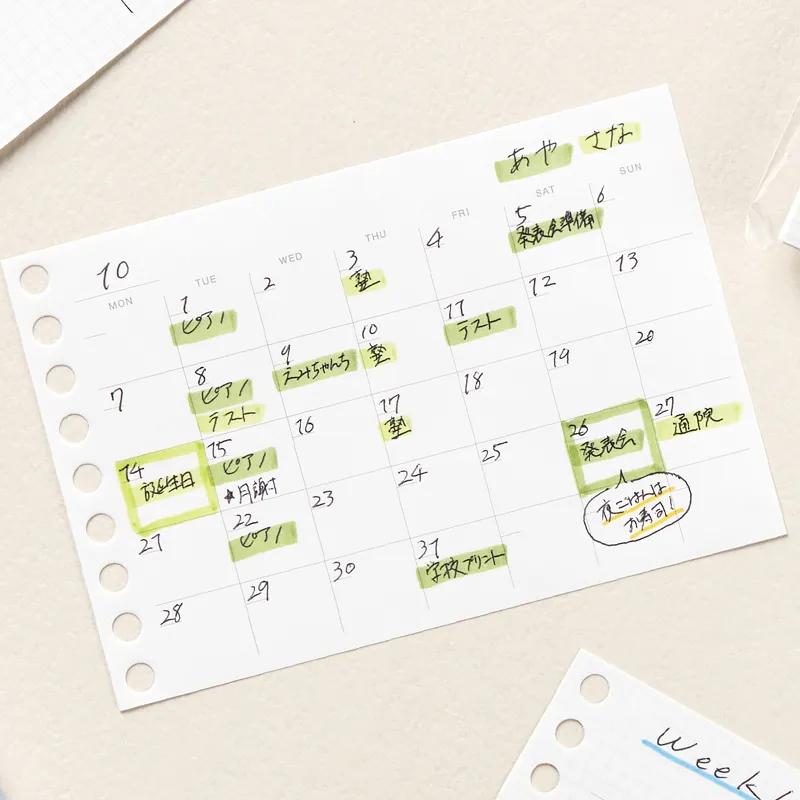 あや さな
10
MON TUE WED THU FRI SAT SUN
1 2 3 4 5 6
ピアノ 塾 発表会準備
7 8 9 10 11 12 13
ピアノ えみちゃんち 塾 テスト
テスト
14 15 16 17 18 19 20
誕生日 ピアノ 塾
★月謝
21 22 23 24 25 26 27
ピアノ 発表会 通院
夜ごはんは
お寿司!
28 29 30 31
学校プリント
Weekl